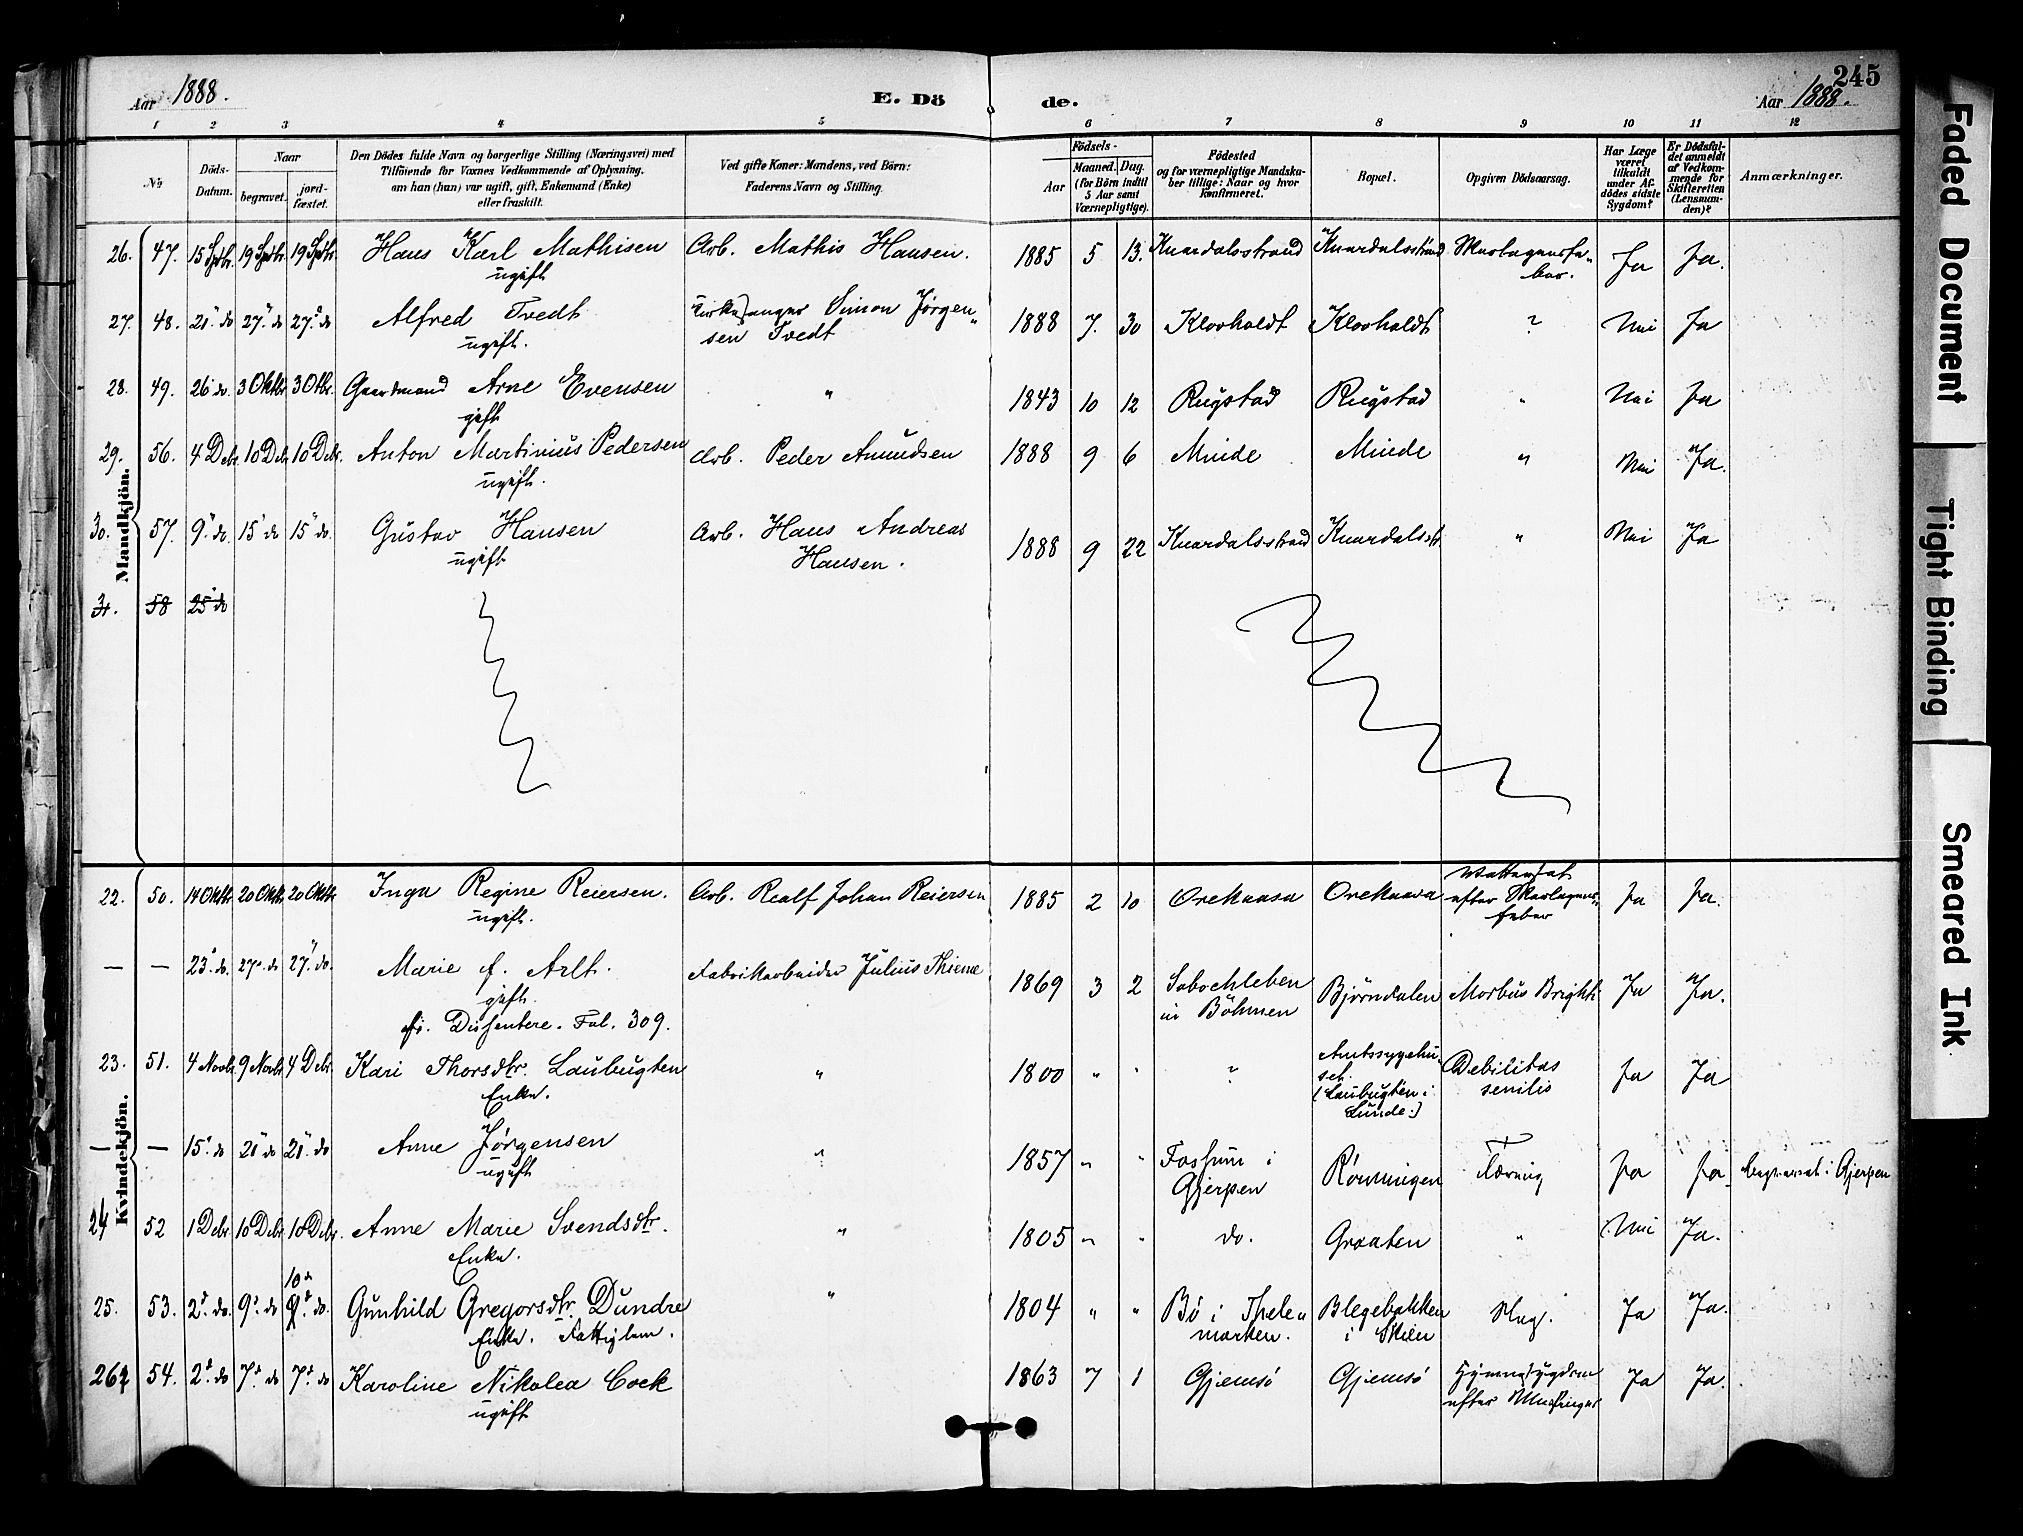 Aar 1888. E. Dö de. Aar 1888. 245
1 2 3 4 5 6 7 8 9 10 11 12
No Döds-Datum. Naar begravet. jord-fæstet.
Den Dödes fulde Navn og borgerlige Stilling (Næringsvei) med
Tilföiende for Voxnes Vedkommende af Oplysning,
om han (hun) var ugift, gift, Enkemand (Enke)
eller fraskilt.
Ved gifte Koner: Mandens, ved Börn:
Faderens Navn og Stilling.
Födsels-
Aar Maaned. Dag.
(for Börn indtil
5 Aar samt
Værnepligtige).
Födested
og for værnepligtige Mandska-
ber tillige: Naar og hvor
konfirmeret.
Bopæl.
Opgiven Dödsaarsag.
Har Læge
været
tilkaldt
under Af-
dödes sidste
Sygdom?
Er Dödsfal-
det anmeldt
af Vedkom-
mende for
Skifteretten
(Lensman-
den)?
Anmærkninger.
Mandkjön.
26. 47. 15 Septbr. 19 Septbr. 19 Septbr. Hans Karl Mathisen Arb. Mathis Hansen. 1885 5 13. Knardalsstrand Knardalsstrand Skarlagensfe-
ugift ber. Ja Ja.
27. 48. 21" do 27" do 27" do Alfred Tvedt Kirkesanger Simon Jørgen- 1888 7. 30 Klovholdt Klovholdt ? Nei Ja
ugift. sen Tvedt
28. 49. 26 do 3 Oktbr 3 Otbr. Gaardmand Arne Evensen " 1843 10 12 Rugstad Rugstad " Nei Ja
gift
29. 56. 4 Debr. 10 Debr 10 Debr. Anton Martinius Pedersen Arb. Peder Amundsen 1888 9 6 Minde Minde " Nei Ja.
ugift.
30. 57. 9" do. 15" do 15" do. Gustav Hansen Arb. Hans Andreas 1888 9 22 Knardalsstrand Knardalsstr " Nei Ja
ugift Hansen.
31. 58 25" do
Kvindekjön.
22. 50. 14 Oktbr 20 Oktbr. 20 Oktbr Inga Regine Reiersen. Arb. Realf Johan Reiersen 1885 2 10 Orekaasa Orekaasa Vattersot
ugift. efter Skarlagens-
feber Ja Ja.
— — 23" do. 27" do 27" do. Marie f. Arlt. Fabrikarbeider Julius Thieme 1869 3 2 Sobochleben Bjørndalen Morbus Brighti Ja Ja.
gift. in Böhmen
fr. Dissentere. Fol. 309.
23. 51. 4 Novbr 9 Novbr 4 Debr. Kari Thorsdtr. Laubugten " 1800 " " ? Amtssygehu-
Enke. set
(Laubugten i
Lunde.) Debilitas
senilis Ja Ja
— — 15" do 21" do 21" do Anne Jørgensen " 1857 " " Fossum i Rønningen Tæring Ja Ja begravet i Gjerpen
ugift Gjerpen
24 52 1 Debr. 10 Debr. 10 Debr. Anne Marie Svendsdtr. " 1805 " " do. Graaten " Nei Ja.
Enke.
10 do
25. 53. 2" do. 9" do 9" do. Gunhild Gregorsdtr. Dundre " 1804 " " Bø i Thele- Blegebakken Slag. Ja Ja.
Enke. Fattiglem. marken. i Skien
26 54. 2" do 7" do 7" do Karoline Nikolea Cock " 1863 7 1 Gjemsø Gjemsø Hjernesygdom Ja Ja.
ugift efter Mæslinger
Faded Document
Tight Binding
Smeared Ink